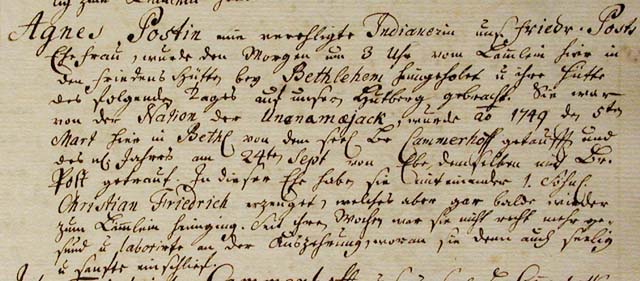 Agnes Postin eine verehligte Indianerin uns. Friedr. Posts
Ehefrau, wurde den Morgen um 3 Uhr vom Lämlein hier in
den Friedens Hütten bey Bethlehem heimgeholet u ihre Hütte
des folgenden Tages auf unsern Hutberg gebracht. Sie war
von der Nation der wurde ao 1749 den 5ten
Mart hier in Bethl von dem seel Br Cammerhoff getaufft und
des Jahres am 24ten Sept von mit Br.
Post getraut. In dieser Ehe haben sie miteinander 1. Söhnl.
Christian Friedrich erzeuget, welches aber gar balde wieder
zum Lämlein heimging. Seit ihren Wochen war sie nicht recht mehr ge-
sund u laborirte an der Auszehrung, woran sie denn auch seelig
u sanfte entschlief.